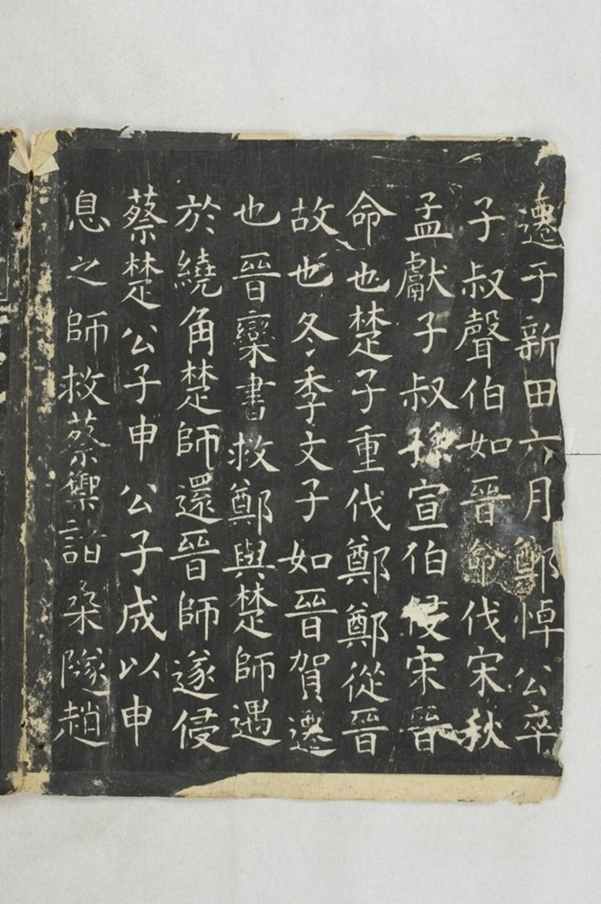 遷于新田六月鄭悼公卒
子叔聲伯如晉命伐宋秋
孟獻子叔孫宣伯侵宋晉
命也楚子重伐鄭鄭從晉
故也冬季文子如晉賀遷
也晉欒書救鄭與楚師遇
於繞角楚師還晉師遂侵
蔡楚公子申公子成以申
息之師救蔡禦諸桑隧趙